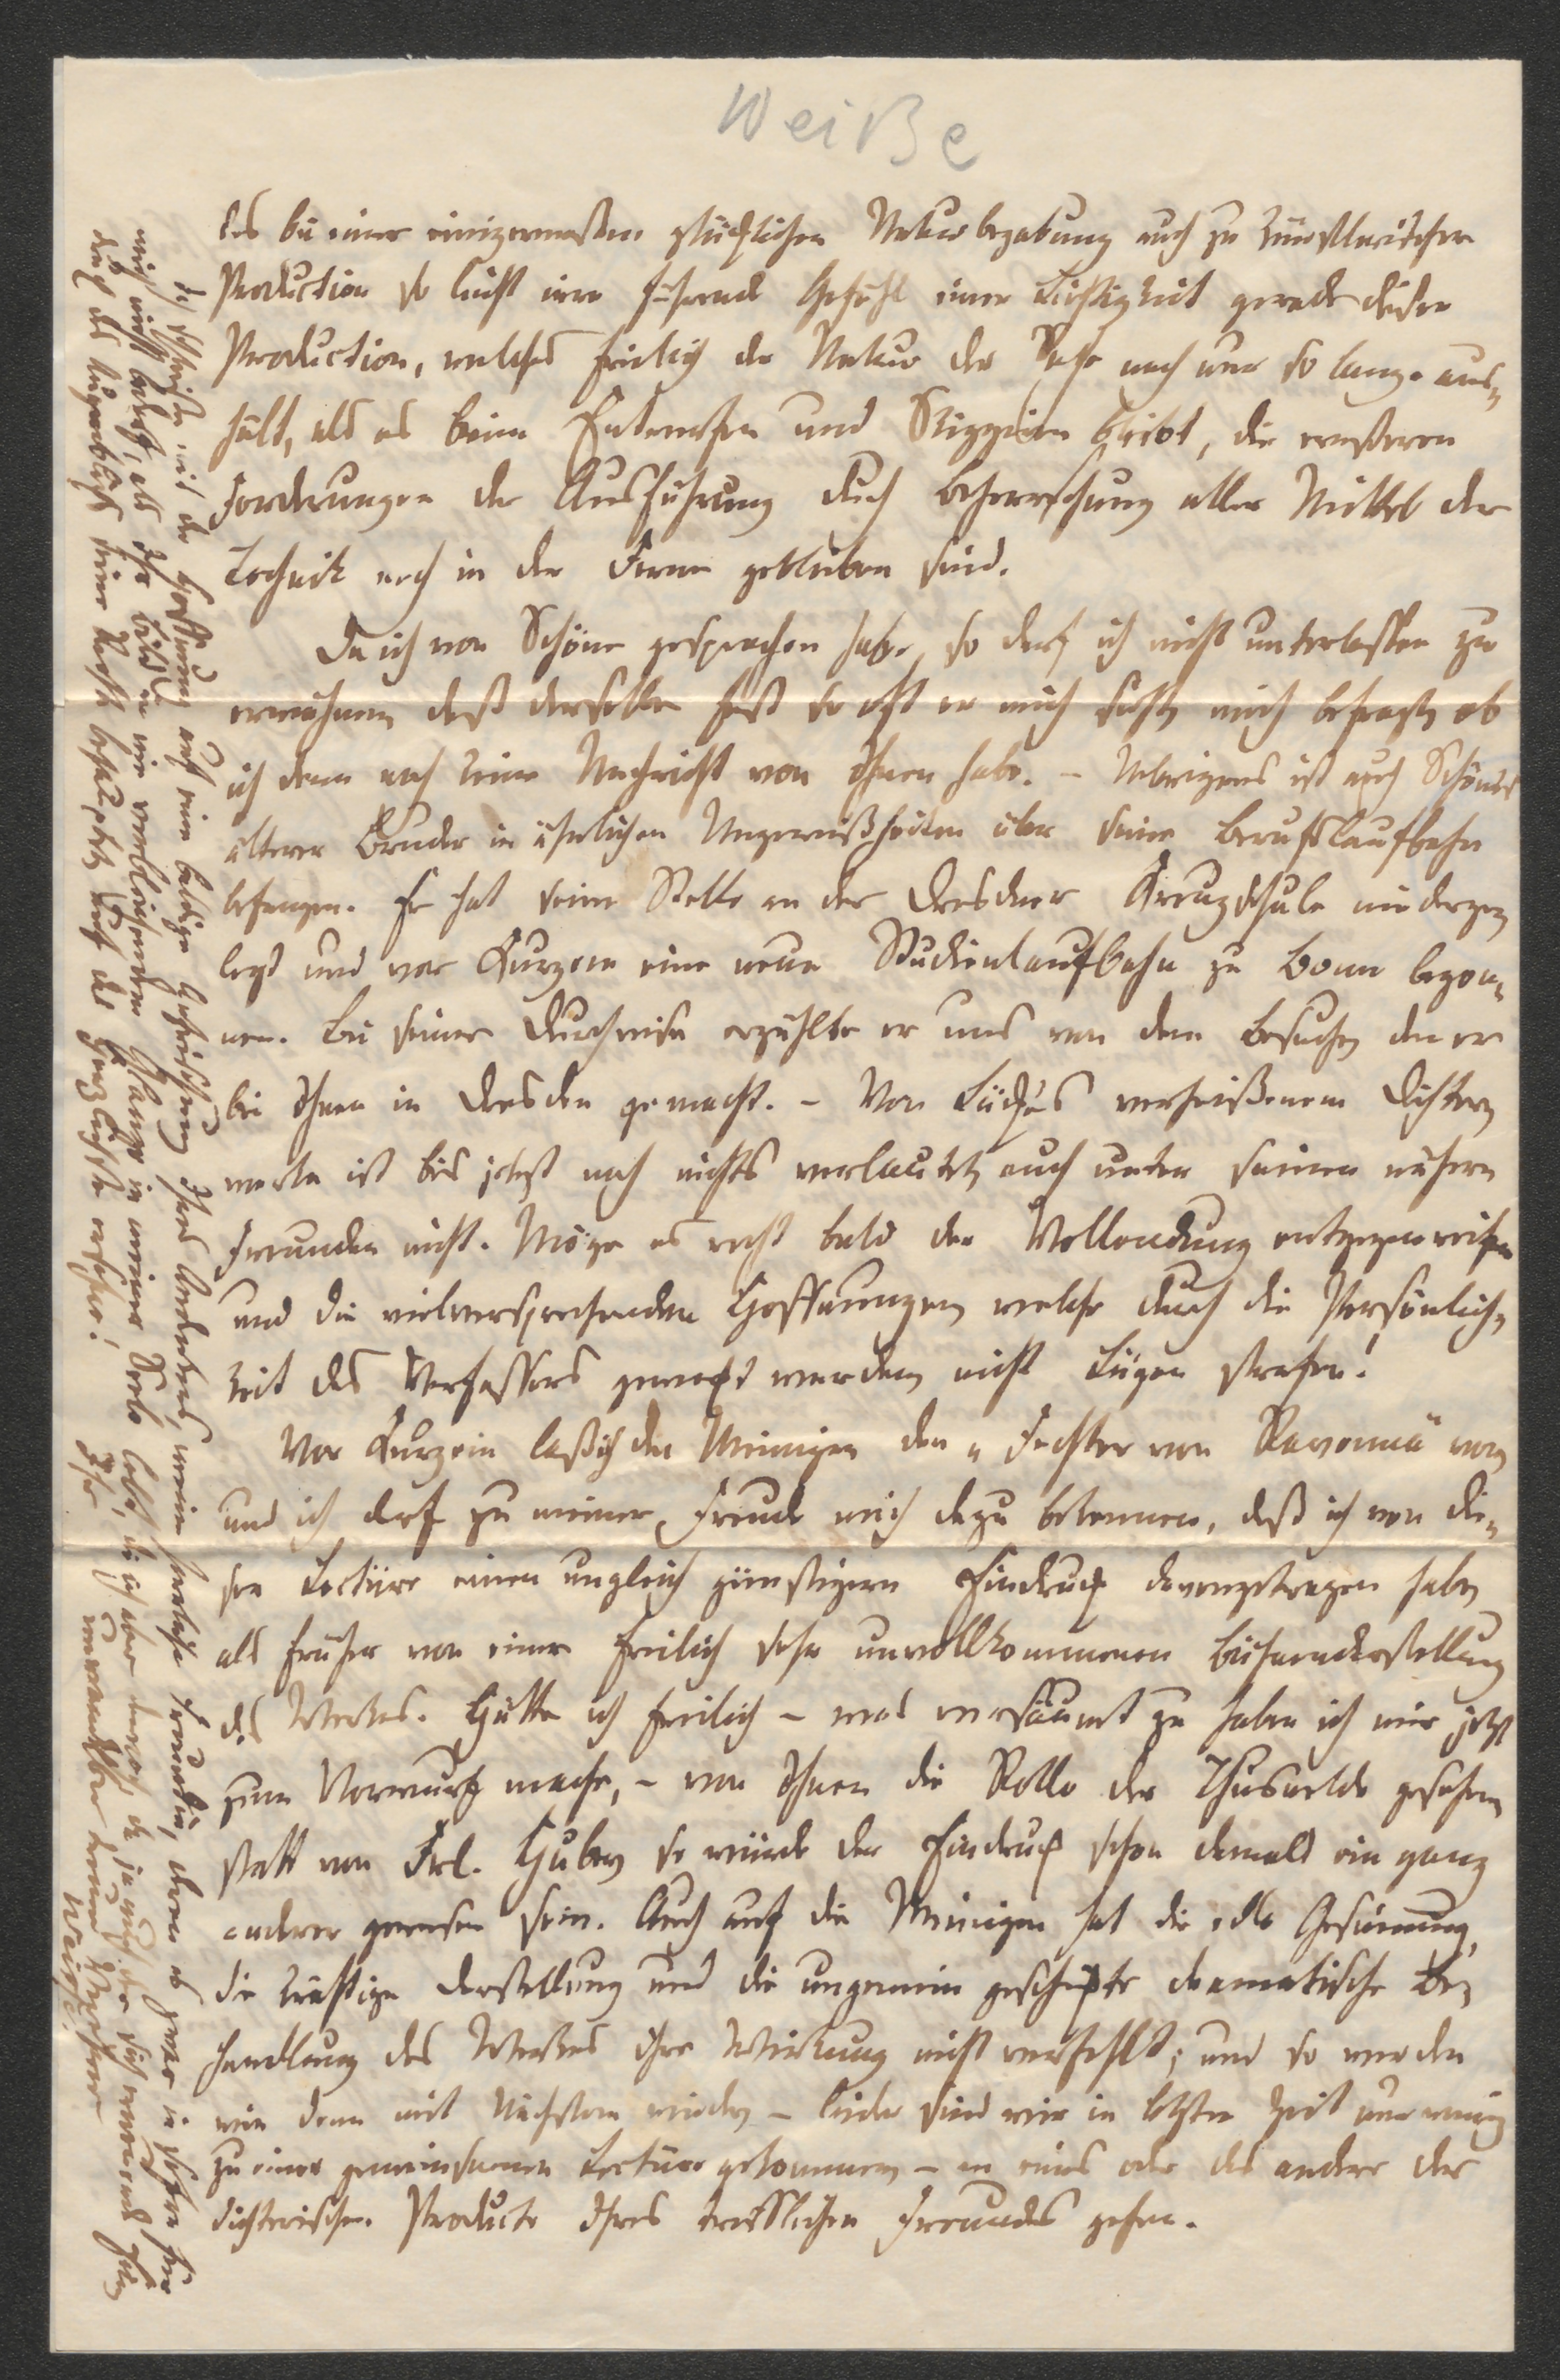 Weiße
das bei einer einigermaßen glücklichen Naturbegabung auch zu künstlerischer
Production so leicht irre führende Gefühl einer Leichtigkeit gerade dieser
Production, welches freilich der Natur der Sache nach nur so lange aus-
hält, als es beim Entwerfen und Skizziren bleibt, die ernsteren
Forderungen der Ausführung durch Beherrschung aller Mittel der
Technik noch in der Ferne geblieben sind.
Da ich von Schöne gesprochen habe, so darf ich nicht unterlassen zu
erwähnen, daß derselbe fast so oft er mich sieht, mich befragt, ob
ich denn noch keine Nachricht von Ihnen habe. – Uebrigens ist auch Schöne's
älterer Bruder in ähnlichen Ungewißheiten über seine Berufslaufbahn
befangen. Er hat seine Stelle an der Dresdner Kreuzschule niederge-
legt und vor Kurzem eine neue Studienlaufbahn zu Bonn begon-
nen. Bei seiner Durchreise erzählte er uns von dem Besuche, den er
bei Ihnen in Dresden gemacht. – Von verheißenem Dichter-
werke ist bis jetzt noch nichts verlautet, auch unter seinen nähern
Freunden nicht. Möge es recht bald der Vollendung entgegenreifen
und die vielversprechenden Hoffnungen, welche durch die Persönlich-
keit des Verfassers geweckt werden, nicht Lügen strafen!
Vor Kurzem las ich den Meinigen den „Fechter von Ravenna" vor,
und ich darf zu meiner Freude mich dazu bekennen, daß ich von die-
ser Lectüre einen ungleich günstigern Eindruck davongetragen habe,
als früher von einer freilich sehr unvollkommenen Bühnendarstellung
des Werkes. Hätte ich freilich – was versäumt zu haben ich mir jetzt
zum Vorwurf mache, – von Ihnen die Rolle der Thusnelda gesehen,
statt von Frl. Huber, so würde der Eindruck schon damals ein ganz
anderer gewesen sein. Auch auf die Meinigen hat die edle Gesinnung,
die kräftige Darstellung und die ungemein geschickte dramatische Be-
handlung des Werkes ihre Wirkung nicht verfehlt; und so werden
wir denn mit Nächstem wieder – leider sind wir in letzter Zeit nur wenig
zu einer gemeinsamen Lectüre gekommen – an eines oder das andere der
dichterischen Producte Ihres trefflichen Freundes gehen.
Ich schließe mit der Hoffnung auf eine baldige Auffrischung Ihres Andenkens, meine Freundin, deren es zwar in sofern für
mich nicht bedarf, als Ihr Bild in nie verbleichendem Glanze in meiner Seele lebt, die ich aber
doch als Augenblicke seiner Kräfte auf das Herzlichste ersehne!
Ihr
unwandelbar treuer Verehrer
Weiße.